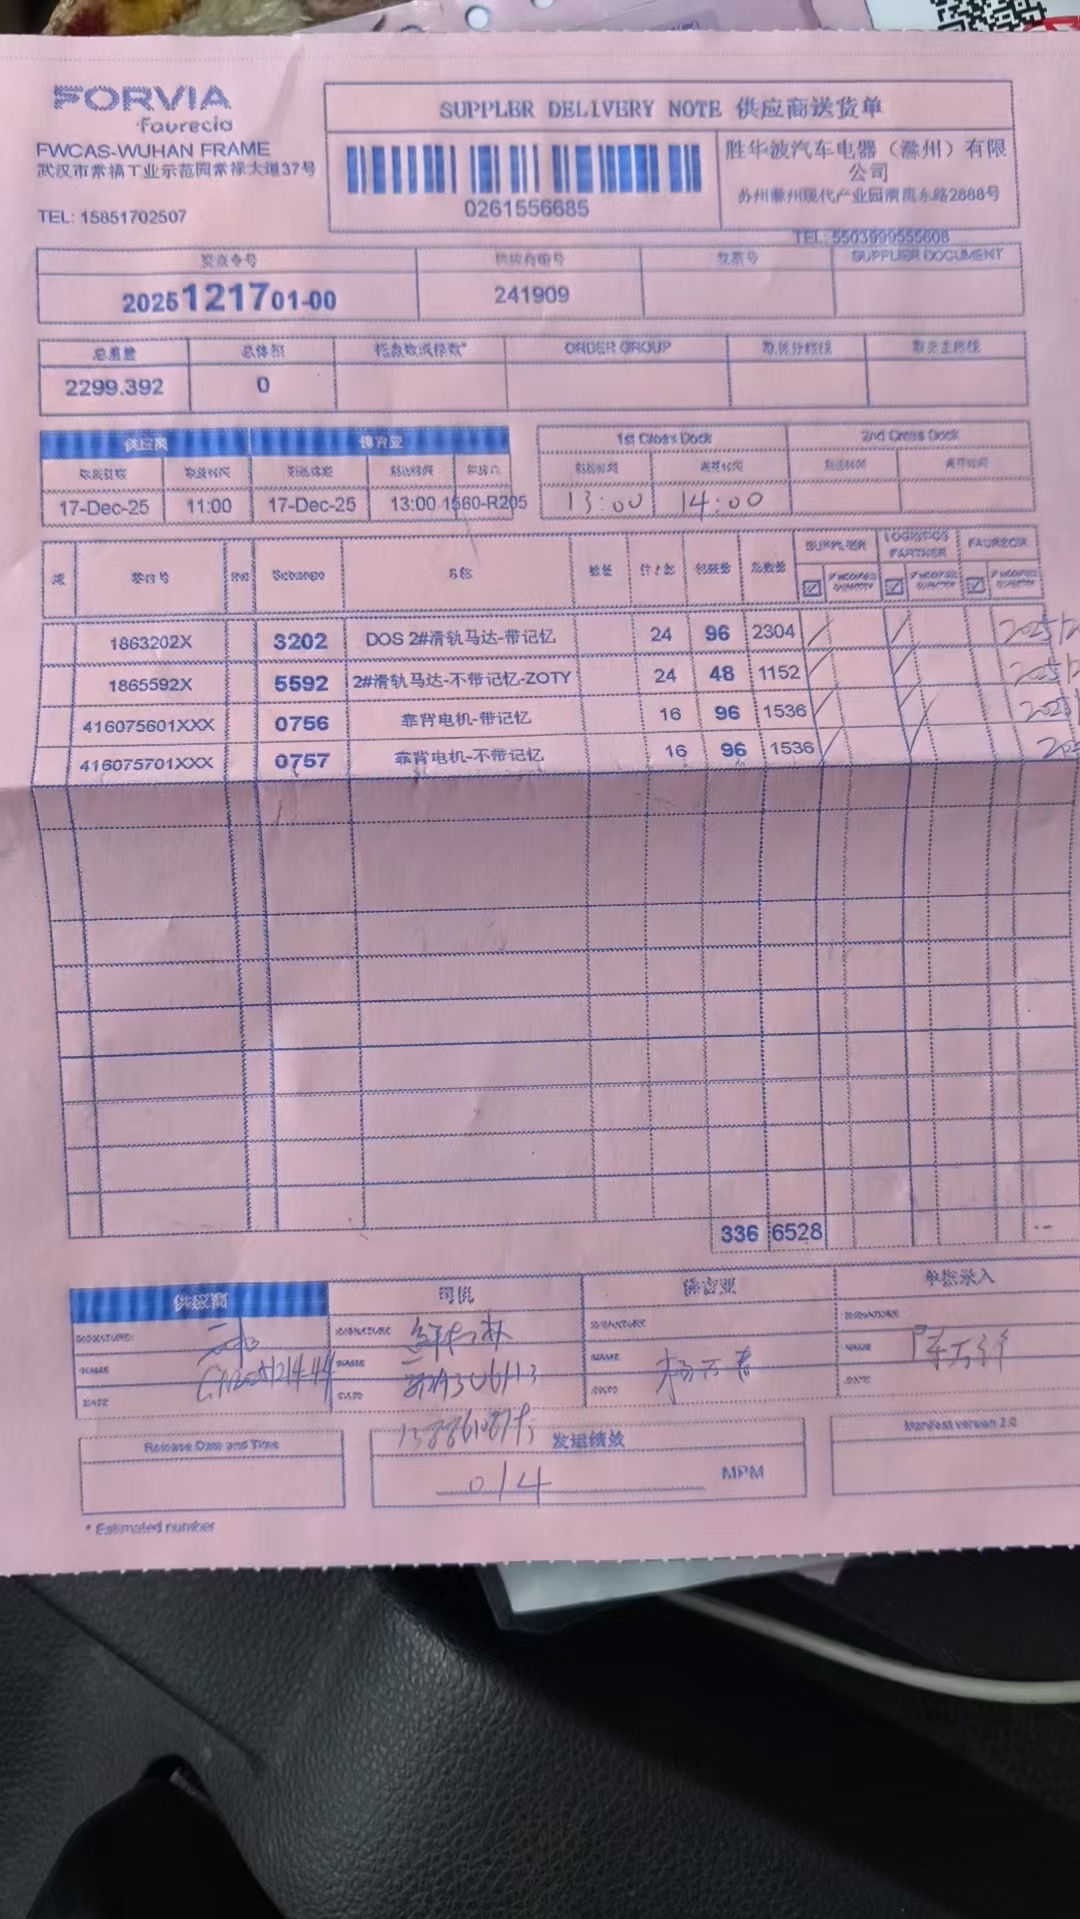 FORVIA
faurecia
FWCAS-WUHAN FRAME
武汉市常福工业示范园常禄大道37号
TEL: 15851702507
SUPPLER DELIVERY NOTE 供应商送货单
0261556685
胜华波汽车电器（滁州）有限
公司
苏州滁州现代产业园清流东路2888号
TEL: 5503999555608
供应商编号 发票号 SUPPLIER DOCUMENT
2025121701-00 241909
总重量 总体积 托盘数或箱数* ORDER GROUP
2299.392 0
供应商 佛吉亚 1st Cross Dock 2nd Cross Dock
17-Dec-25 11:00 17-Dec-25 13:00 1560-R205 13:00 14:00
零件号 Sebango 名称 总数量 SUPPLIER LOGISTICS PARTNER FAURECIA
1863202X 3202 DOS 2#滑轨马达-带记忆 24 96 2304
1865592X 5592 2#滑轨马达-不带记忆-ZOTY 24 48 1152
416075601XXX 0756 靠背电机-带记忆 16 96 1536
416075701XXX 0757 靠背电机-不带记忆 16 96 1536
336 6528
供应商 司机 佛吉亚 单据录入
SIGNATURE SIGNATURE SIGNATURE SIGNATURE
NAME NAME NAME NAME
DATE DATE DATE DATE
Release Date and Time 发运绩效 Manifest version 2.0
0/4 MPM
* Estimated number